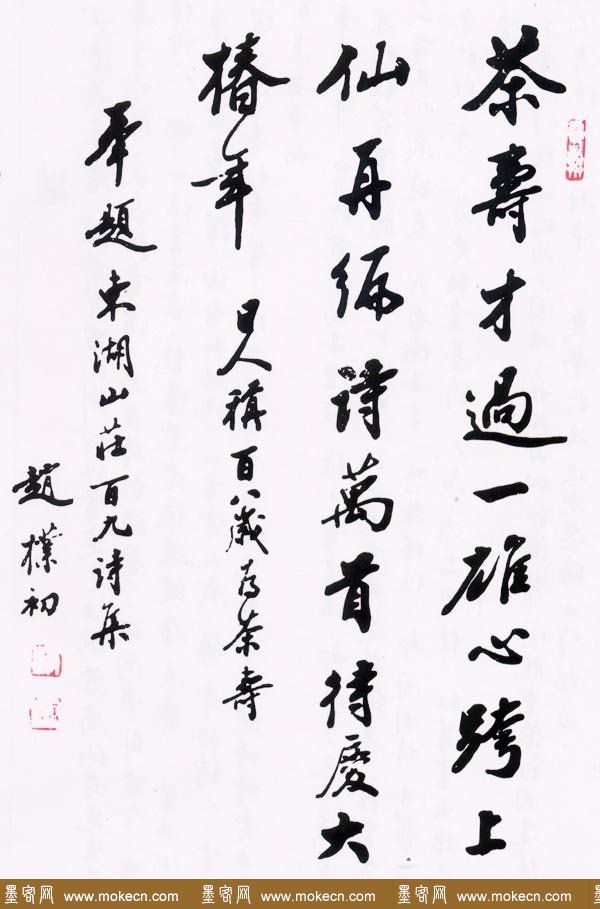 茶壽才過一雄心跨上
仙再編詩萬首待慶大
椿年 日人稱百八歲為茶壽
奉題東湖山莊百九詩集
趙樸初
墨客网 www.mokecn.com 墨客网 www.mokecn.com 墨客网 www.mokecn.com